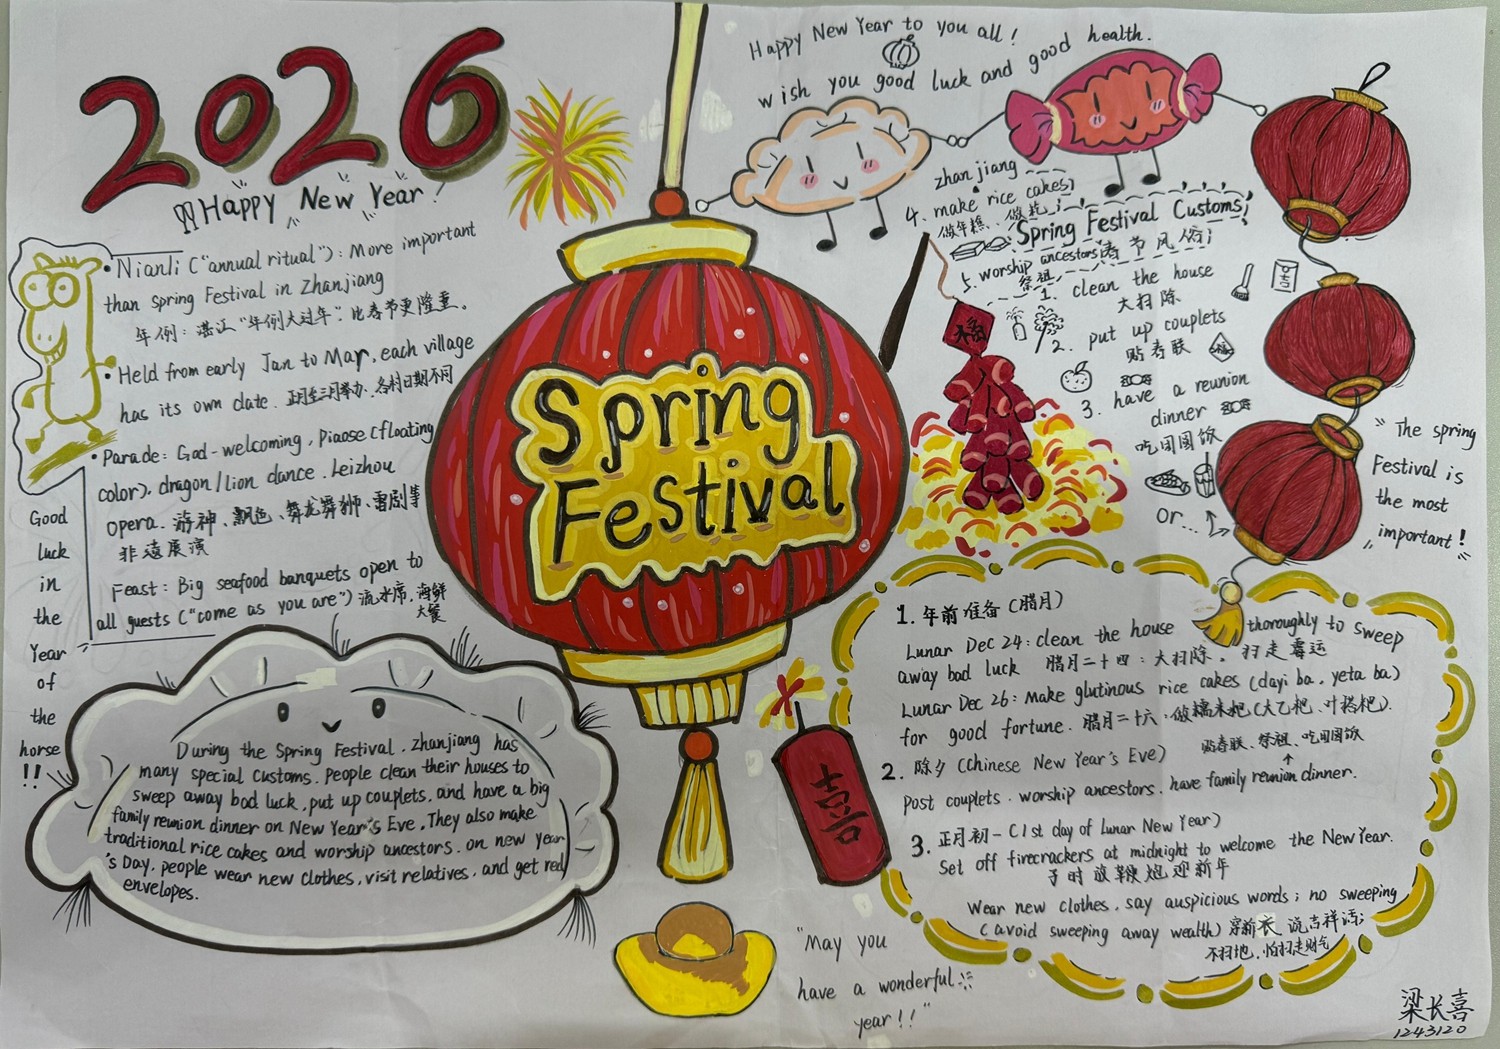 2026
Happy New Year!
• Nianli ("annual ritual"): More important
than spring Festival in Zhanjiang
年例：湛江"年例大过年"，比春节更隆重。
• Held from early Jan to Mar, each village
has its own date. 正月至三月举办、各村日期不同
• Parade: God-welcoming, Piaose (floating
color), dragon/lion dance. Leizhou
opera. 游神、飘色、舞龙舞狮、雷剧等
非遗展演
Feast: Big seafood banquets open to
all guests ("come as you are") 流水席，海鲜
大餐
Good
luck
in
the
Year
of
the
horse
!!
During the Spring Festival, Zhanjiang has
many special customs. People clean their houses to
sweep away bad luck, put up couplets, and have a big
family reunion dinner on New Year's Eve. They also make
traditional rice cakes and worship ancestors. on new year
's Day, people wear new clothes, visit relatives, and get red
envelopes.
Spring
Festival
Happy New Year to you all!
wish you good luck and good health.
zhanjiang
Spring Festival Customs
春节风俗
1. clean the house
大扫除
2. put up couplets
贴春联
3. have a reunion
dinner
吃团圆饭
or...
4. make rice cakes
做年糕、做粑
5. worship ancestors
祭祖
福
吉
福
喜
"The spring
Festival is
the most
important!"
1. 年前准备（腊月）
Lunar Dec 24: clean the house thoroughly to sweep
away bad luck 腊月二十四：大扫除。扫走霉运
Lunar Dec 26: Make glutinous rice cakes (dayi ba, yeta ba)
for good fortune. 腊月二十六：做糯米粑（大乙粑、叶搭粑）.
贴春联、祭祖、吃团圆饭
2. 除夕 (Chinese New Year's Eve)
Post couplets. worship ancestors. have family reunion dinner.
3. 正月初一 (1st day of Lunar New Year)
Set off firecrackers at midnight to welcome the New Year.
子时放鞭炮迎新年
Wear new clothes, say auspicious words; no sweeping
(avoid sweeping away wealth) 穿新衣 说吉祥话；
不扫地，怕扫走财气
"May you
have a wonderful
year!!"
梁长喜
1243120